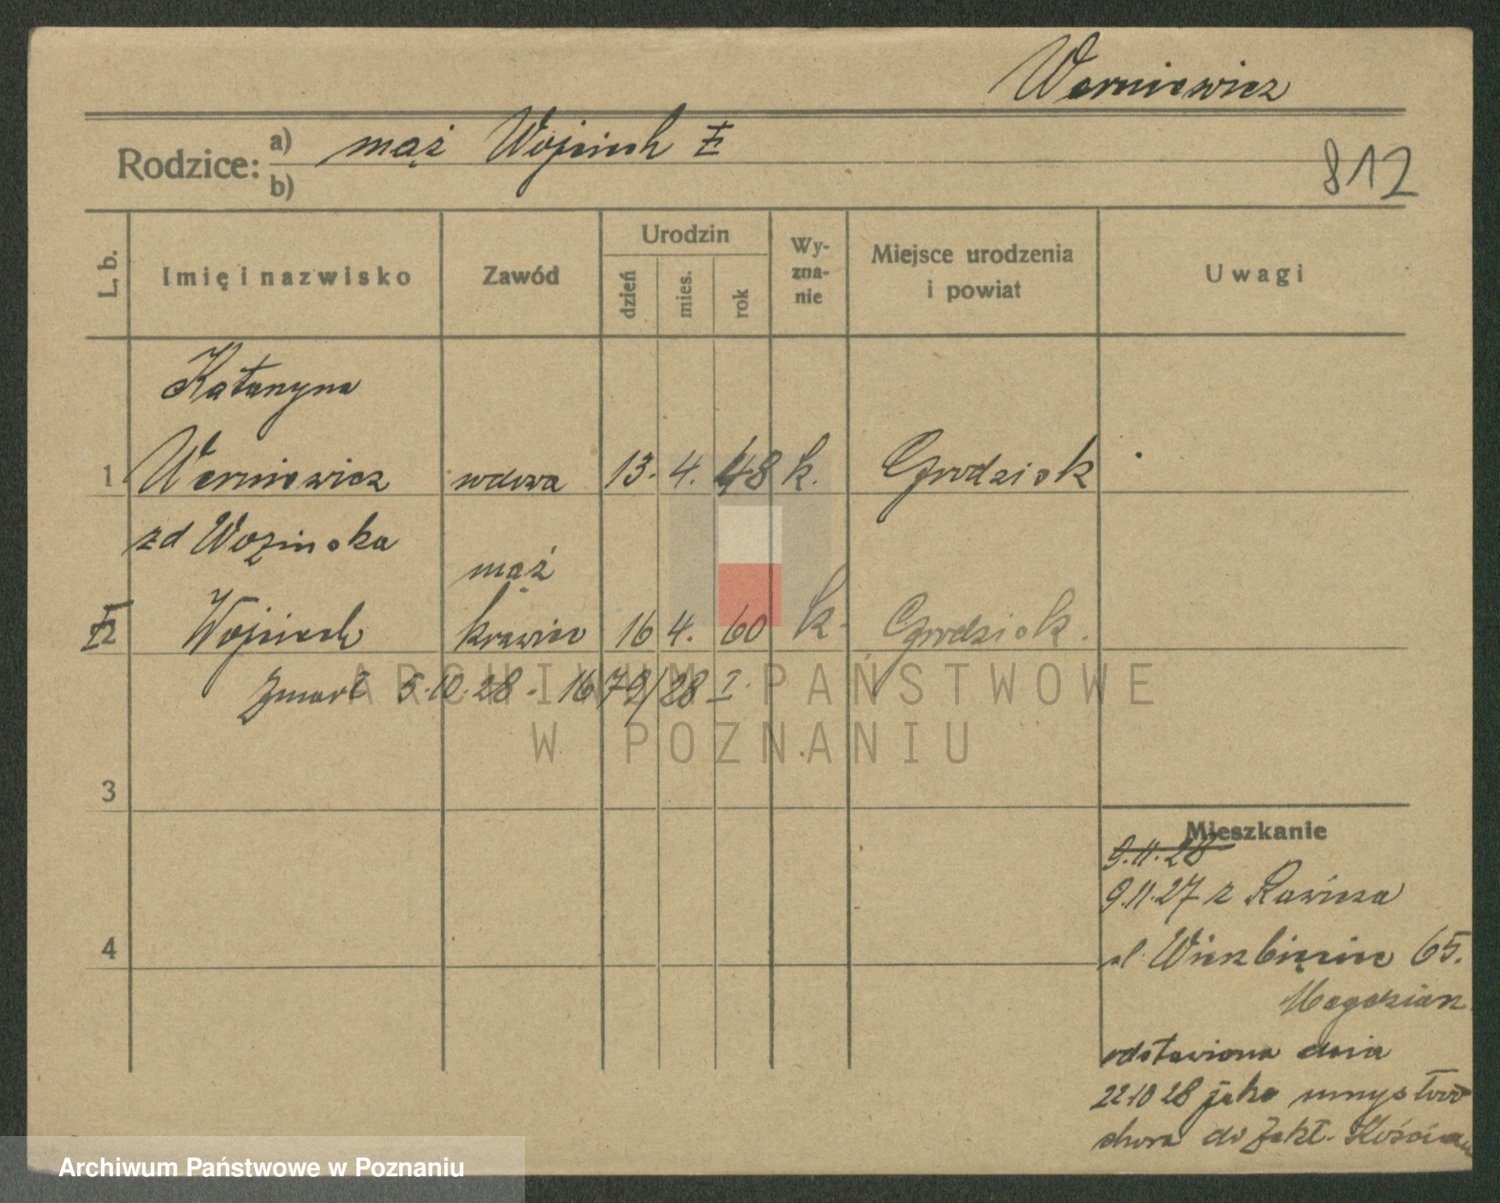 Werniewicz
Rodzice: a) mąż Wojciech †
b)
812
L. b. Imię i nazwisko Zawód Urodzin dzień mies. rok Wy-zna-nie Miejsce urodzenia i powiat Uwagi
Katarzyna
1 Werniewicz wdowa 13. 4. 48 k. Grodzisk
zd Wozińska
mąż
† 2 Wojciech krawiec 16 4. 60 k. Grodzisk.
Zmarł 5.10.28 - 1679/28 I.
3
Mieszkanie
9.11.28
9.11.27 z Rawicza
4
ul. Wierzbięcice 65.
odstawiona dnia
22.10 28 jako umysłowo
chora do Zakł. Kościan
ARCHIWUM PAŃSTWOWE
W POZNANIU
Archiwum Państwowe w Poznaniu